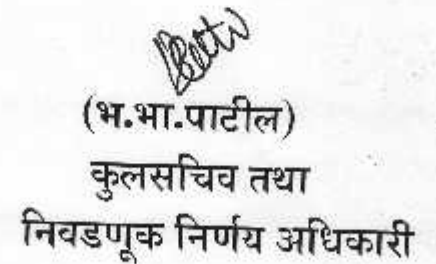 (भ.भा.पाटील)
कुलसचिव तथा
निवडणूक निर्णय अधिकारी